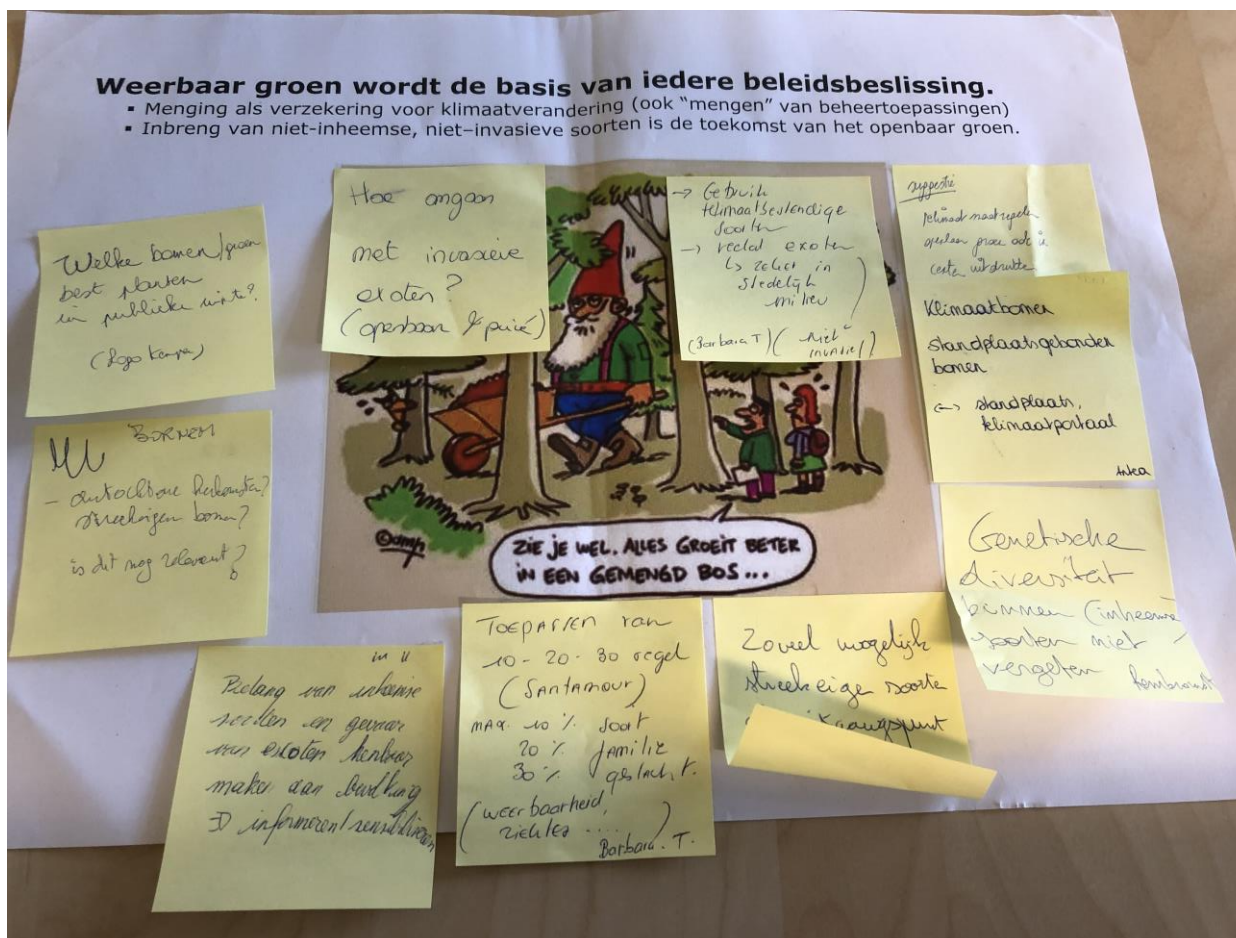 Weerbaar groen wordt de basis van iedere beleidsbeslissing.
▪ Menging als verzekering voor klimaatverandering (ook “mengen” van beheertoepassingen)
▪ Inbreng van niet-inheemse, niet–invasieve soorten is de toekomst van het openbaar groen.
Welke bomen/groen
best planten
in publieke ruimte?
Hoe omgaan
met invasieve
exoten?
(openbaar & privé)
→ Gebruik
klimaatbestendige
soorten
→ veelal exoten
↳ zeker in
stedelijk
milieu
(Barbara T) (niet
invasief)
suggestie
klimaatmaatregelen
Klimaatbomen
standplaatsgebonden
bomen
<-> standplaats,
klimaatportaal
BORNEM
- autochtone herkomsten?
bomen?
is dit nog relevant?
©amp
ZIE JE WEL. ALLES GROEIT BETER
IN EEN GEMENGD BOS...
Genetische
diversiteit
binnen (inheemse)
soorten niet
vergeten
Belang van inheemse
soorten en gevaar
van exoten kenbaar
maken aan bevolking
informeren/sensibiliseren
TOEPASSEN van
10 - 20 - 30 regel
(Santamour)
MAX. 10 % soort
20 % familie
30 % geslacht.
(weerbaarheid,
ziektes ....)
Barbara. T.
Zoveel mogelijk
streekeige soorten